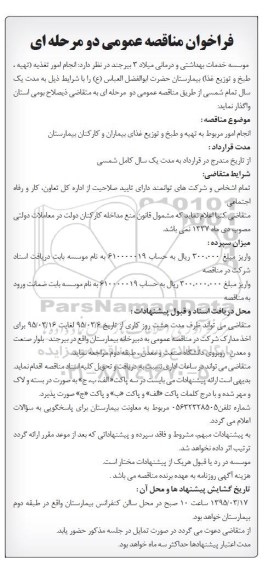 فراخوان مناقصه عمومی دو مرحله ای
موسسه خدمات بهداشتی و درمانی میلاد ۳ بیرجند در نظر دارد: انجام امور تغذیه (تهیه ،
طبخ و توزیع غذا) بیمارستان حضرت ابوالفضل العباس (ع) را با شرایط ذیل به مدت یک
سال تمام شمسی از طریق مناقصه عمومی دو مرحله ای به متقاضی ذیصلاح بومی استان
واگذار نماید:
موضوع مناقصه :
انجام امور مربوط به تهیه و طبخ و توزیع غذای بیماران و کارکنان بیمارستان
مدت قرارداد :
از تاریخ مندرج در قرارداد به مدت یک سال کامل شمسی
شرایط متقاضی:
تمام اشخاص و شرکت های توانمند دارای تایید صلاحیت از اداره کل تعاون، کار و رفاه
اجتماعی
متقاضی کتبا اعلام نماید که مشمول قانون منع مداخله کارکنان دولت در معاملات دولتی
مصوب دی ماه ۱۳۳۷ نمی باشد.
میزان سپرده :
واریز مبلغ ۳۰۰،۰۰۰ ریال به حساب ۶۱۰۰۰۰۰۱۹ به نام موسسه بابت دریافت اسناد
شرکت در مناقصه
واریز مبلغ ۳۰۰،۰۰۰،۰۰۰ ریال به حساب ۶۱۰۰۰۰۰۱۹ به نام موسسه بابت ضمانت ورود
به مناقصه
محل دریافت اسناد و قبول پیشنهادات :
متقاضی می تواند ظرف مدت هشت روز کاری از تاریخ ۹۵/۰۲/۶ لغایت ۹۵/۰۲/۱۶ برای
اخذ مدارک شرکت در مناقصه عمومی به دبیرخانه بیمارستان واقع در بیرجند- بلوار صنعت
و معدن - روبروی دانشگاه صنعت و معدن، طبقه دوم مراجعه نماید.
متقاضی می تواند در ساعات اداری نسبت به دریافت و تحویل کلیه اسناد مناقصه اقدام نماید.
بدیهی است ارائه پیشنهادات می بایست در سه پاکت «الف، ب، ج» به صورت در بسته و لاک
و مهر شده و با درج کلمات پاکت «الف» و پاکت «ب» و پاکت «ج» صورت پذیرد.
شماره تلفن ۰۵۶۳۲۳۲۸۵۰۵ مربوط به معاونت بیمارستان برای پاسخگویی به سؤالات
اعلام می گردد.
به پیشنهادات مبهم، مشروط و فاقد سپرده و پیشنهاداتی که بعد از موعد مقرر ارائه گردد
ترتیب اثر داده نخواهد شد.
موسسه در رد یا قبول هریک از پیشنهادات مختار است.
هزینه آگهی روزنامه به عهده برنده مناقصه می باشد.
تاریخ گشایش پیشنهاد ها و محل آن :
۱۳۹۵/۰۲/۱۷ ساعت ۱۰ صبح در محل سالن کنفرانس بیمارستان واقع در طبقه دوم
بیمارستان خواهد بود.
از متقاضی دعوت می گردد در صورت تمایل در جلسه مذکور حضور یابد.
مدت اعتبار پیشنهادها حداکثر سه ماه خواهد بود.
ParsNamadData